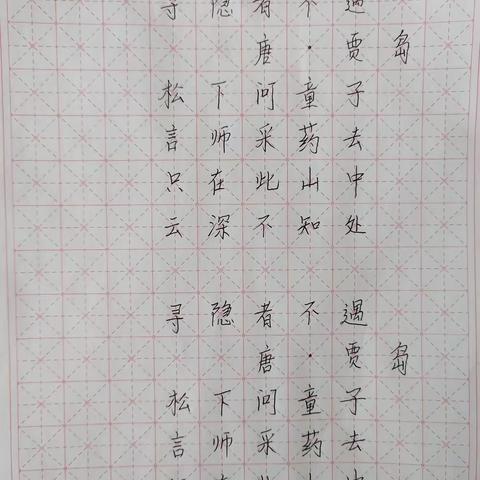 寻隐者不遇
唐·贾岛
松下问童子
言师采药去
只在此山中
云深不知处
寻隐者不遇
唐·贾岛
松下问童子
言师采药去